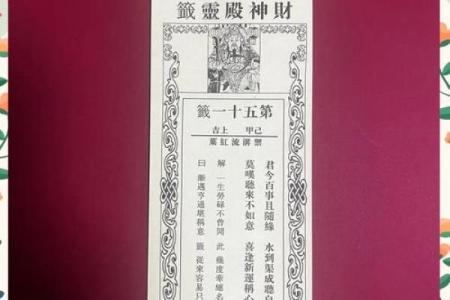 財神殿靈籤
第五十一籤
己甲 上吉
禦溝流紅葉
君今百事且隨緣 水到渠成聽自
莫嘆聽來不如意 喜逢新運稱心
解 一生勞碌不曾閒 此 幾度牽纏名
曰 漸遇亨通堪稱意 籤 從來容易只